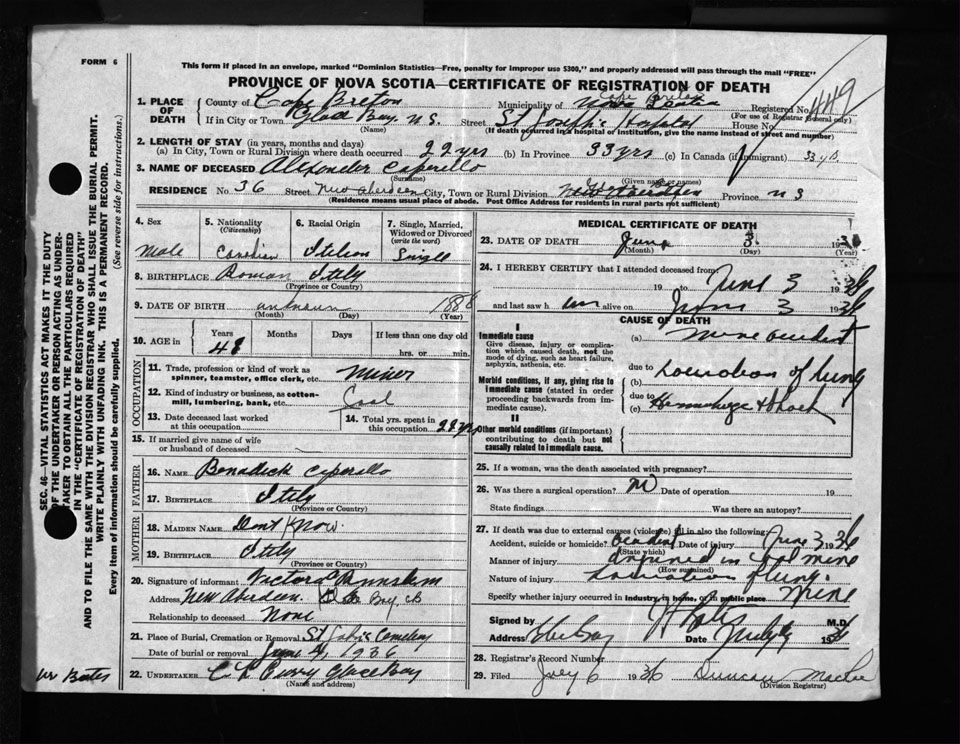 FORM 6
This form if placed in an envelope, marked "Dominion Statistics—Free, penalty for improper use $300," and properly addressed will pass through the mail "FREE"
PROVINCE OF NOVA SCOTIA—CERTIFICATE OF REGISTRATION OF DEATH
1. PLACE OF DEATH County of Cape Breton Municipality of Cape Breton Nova Scotia Registered No. 449
(For use of Registrar General only)
If in City or Town Glace Bay, N.S. Street St Josephs Hospital House No.
(Name) (If death occurred in a hospital or institution, give the name instead of street and number)
2. LENGTH OF STAY (in years, months and days)
(a) In City, Town or Rural Division where death occurred 22 yrs (b) In Province 33 yrs (c) In Canada (if immigrant) 33 yrs.
3. NAME OF DECEASED Alexander Caperillo
(Surname) (Given name or names)
RESIDENCE No. 36 Street New Aberdeen City, Town or Rural Division New Aberdeen Province N S
(Residence means usual place of abode. Post Office Address for residents in rural parts not sufficient)
4. Sex 5. Nationality (Citizenship) 6. Racial Origin 7. Single, Married, Widowed or Divorced (write the word)
Male Canadian Italian Single
8. BIRTHPLACE Roman Italy
(Province or Country)
9. DATE OF BIRTH unknown 1888
(Month) (Day) (Year)
10. AGE in Years Months Days If less than one day old
48 hrs. or min.
OCCUPATION
11. Trade, profession or kind of work as spinner, teamster, office clerk, etc. Miner
12. Kind of industry or business, as cotton-mill, lumbering, bank, etc. Coal
13. Date deceased last worked at this occupation
14. Total yrs. spent in this occupation 28 yrs
15. If married give name of wife or husband of deceased
FATHER
16. NAME Benadick Caperillo
17. BIRTHPLACE Italy
(Province or Country)
MOTHER
18. MAIDEN NAME Dont Know.
19. BIRTHPLACE Italy
(Province or Country)
20. Signature of informant Victor
Address New Aberdeen. Glace Bay, CB
Relationship to deceased None
21. Place of Burial, Cremation or Removal St John's Cemetery
Date of burial or removal June 4, 1936
22. UNDERTAKER C L Curry Glace Bay
(Name and address)
MEDICAL CERTIFICATE OF DEATH
23. DATE OF DEATH June 3 1936
(Month) (Day) (Year)
24. I HEREBY CERTIFY that I attended deceased from
19 to June 3 1936
and last saw h im alive on June 3 1936
CAUSE OF DEATH
I
Immediate cause
Give disease, injury or complication which caused death, not the mode of dying, such as heart failure, asphyxia, asthenia, etc.
(a) mine accident
due to
Morbid conditions, if any, giving rise to immediate cause (stated in order proceeding backwards from immediate cause).
(b) Laceration of lung
due to
(c) Hemorrhage & Shock
II
Other morbid conditions (if important) contributing to death but not causally related to immediate cause.
25. If a woman, was the death associated with pregnancy?
26. Was there a surgical operation? No Date of operation 19
State findings Was there an autopsy?
27. If death was due to external causes (violence) fill in also the following:
Accident, suicide or homicide? Accident Date of injury June 3 1936
(State which)
Manner of injury injured in coal mine
(How sustained)
Nature of injury Laceration of lung.
Specify whether injury occurred in industry, in home, or in public place Mine
Signed by M.D.
Address Glace Bay Date 1936
28. Registrar's Record Number
29. Filed July 6 1936 Duncan
(Division Registrar)
SEC. 46—VITAL STATISTICS ACT MAKES IT THE DUTY
OF THE UNDERTAKER OR PERSON ACTING AS UNDER-
TAKER TO OBTAIN ALL THE PARTICULARS REQUIRED
IN THE "CERTIFICATE OF REGISTRATION OF DEATH"
AND TO FILE THE SAME WITH THE DIVISION REGISTRAR WHO SHALL ISSUE THE BURIAL PERMIT.
WRITE PLAINLY WITH UNFADING INK. THIS IS A PERMANENT RECORD.
Every item of information should be carefully supplied. (See reverse side for instructions.)